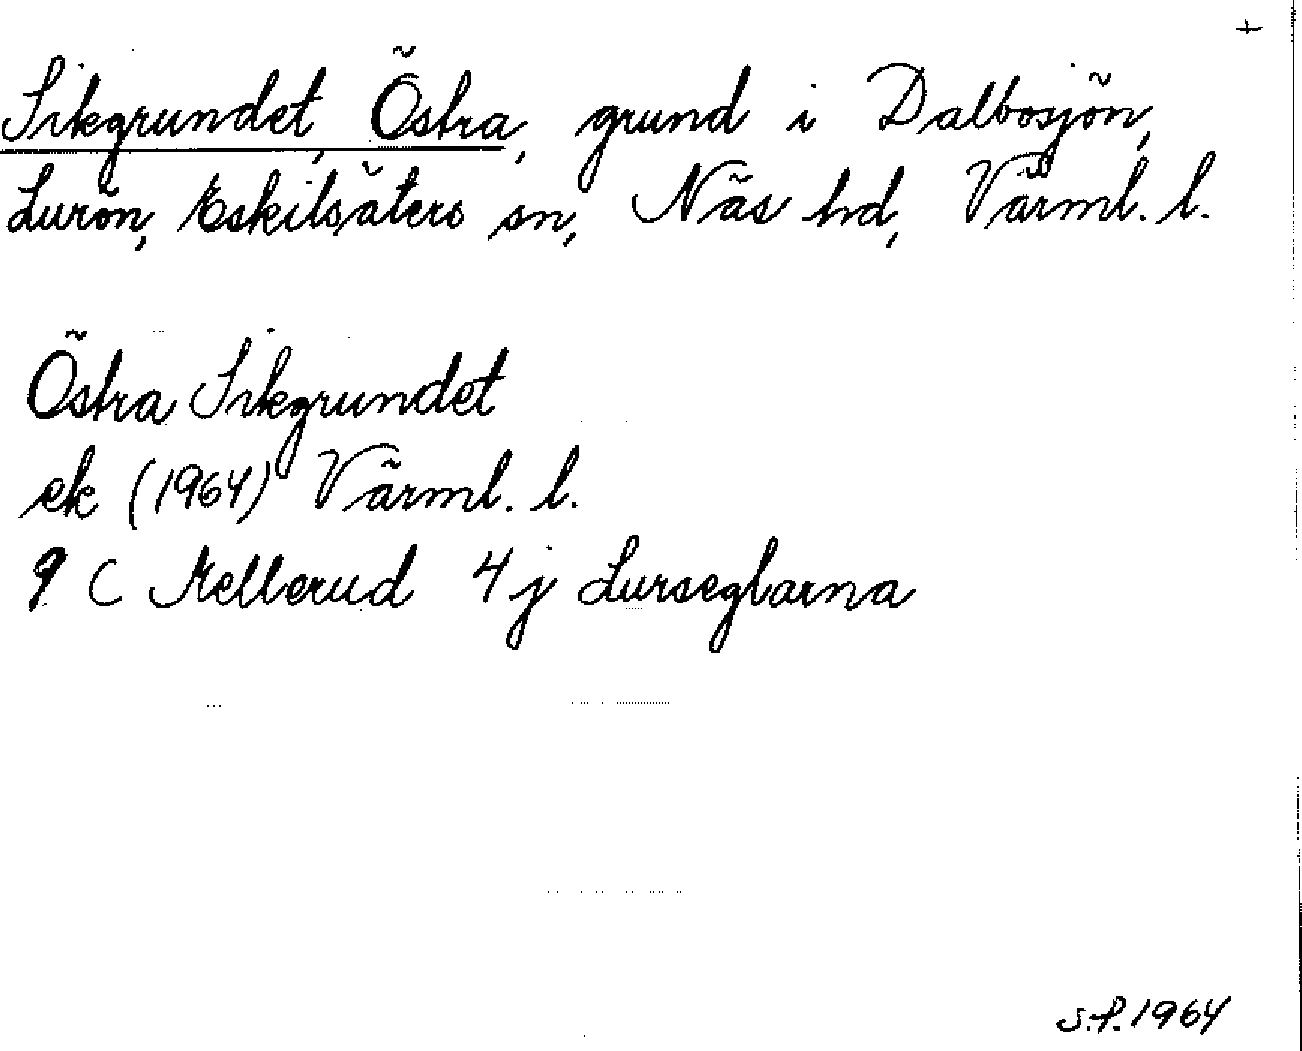 +
Sikgrundet, Östra, grund i Dalbosjön,
Lurön, Eskilsäters sn, Näs hd, Värml. l.
Östra Sikgrundet
ek (1964) Värml. l.
9 C Mellerud 4 j Lurseglarna
S.P. 1964